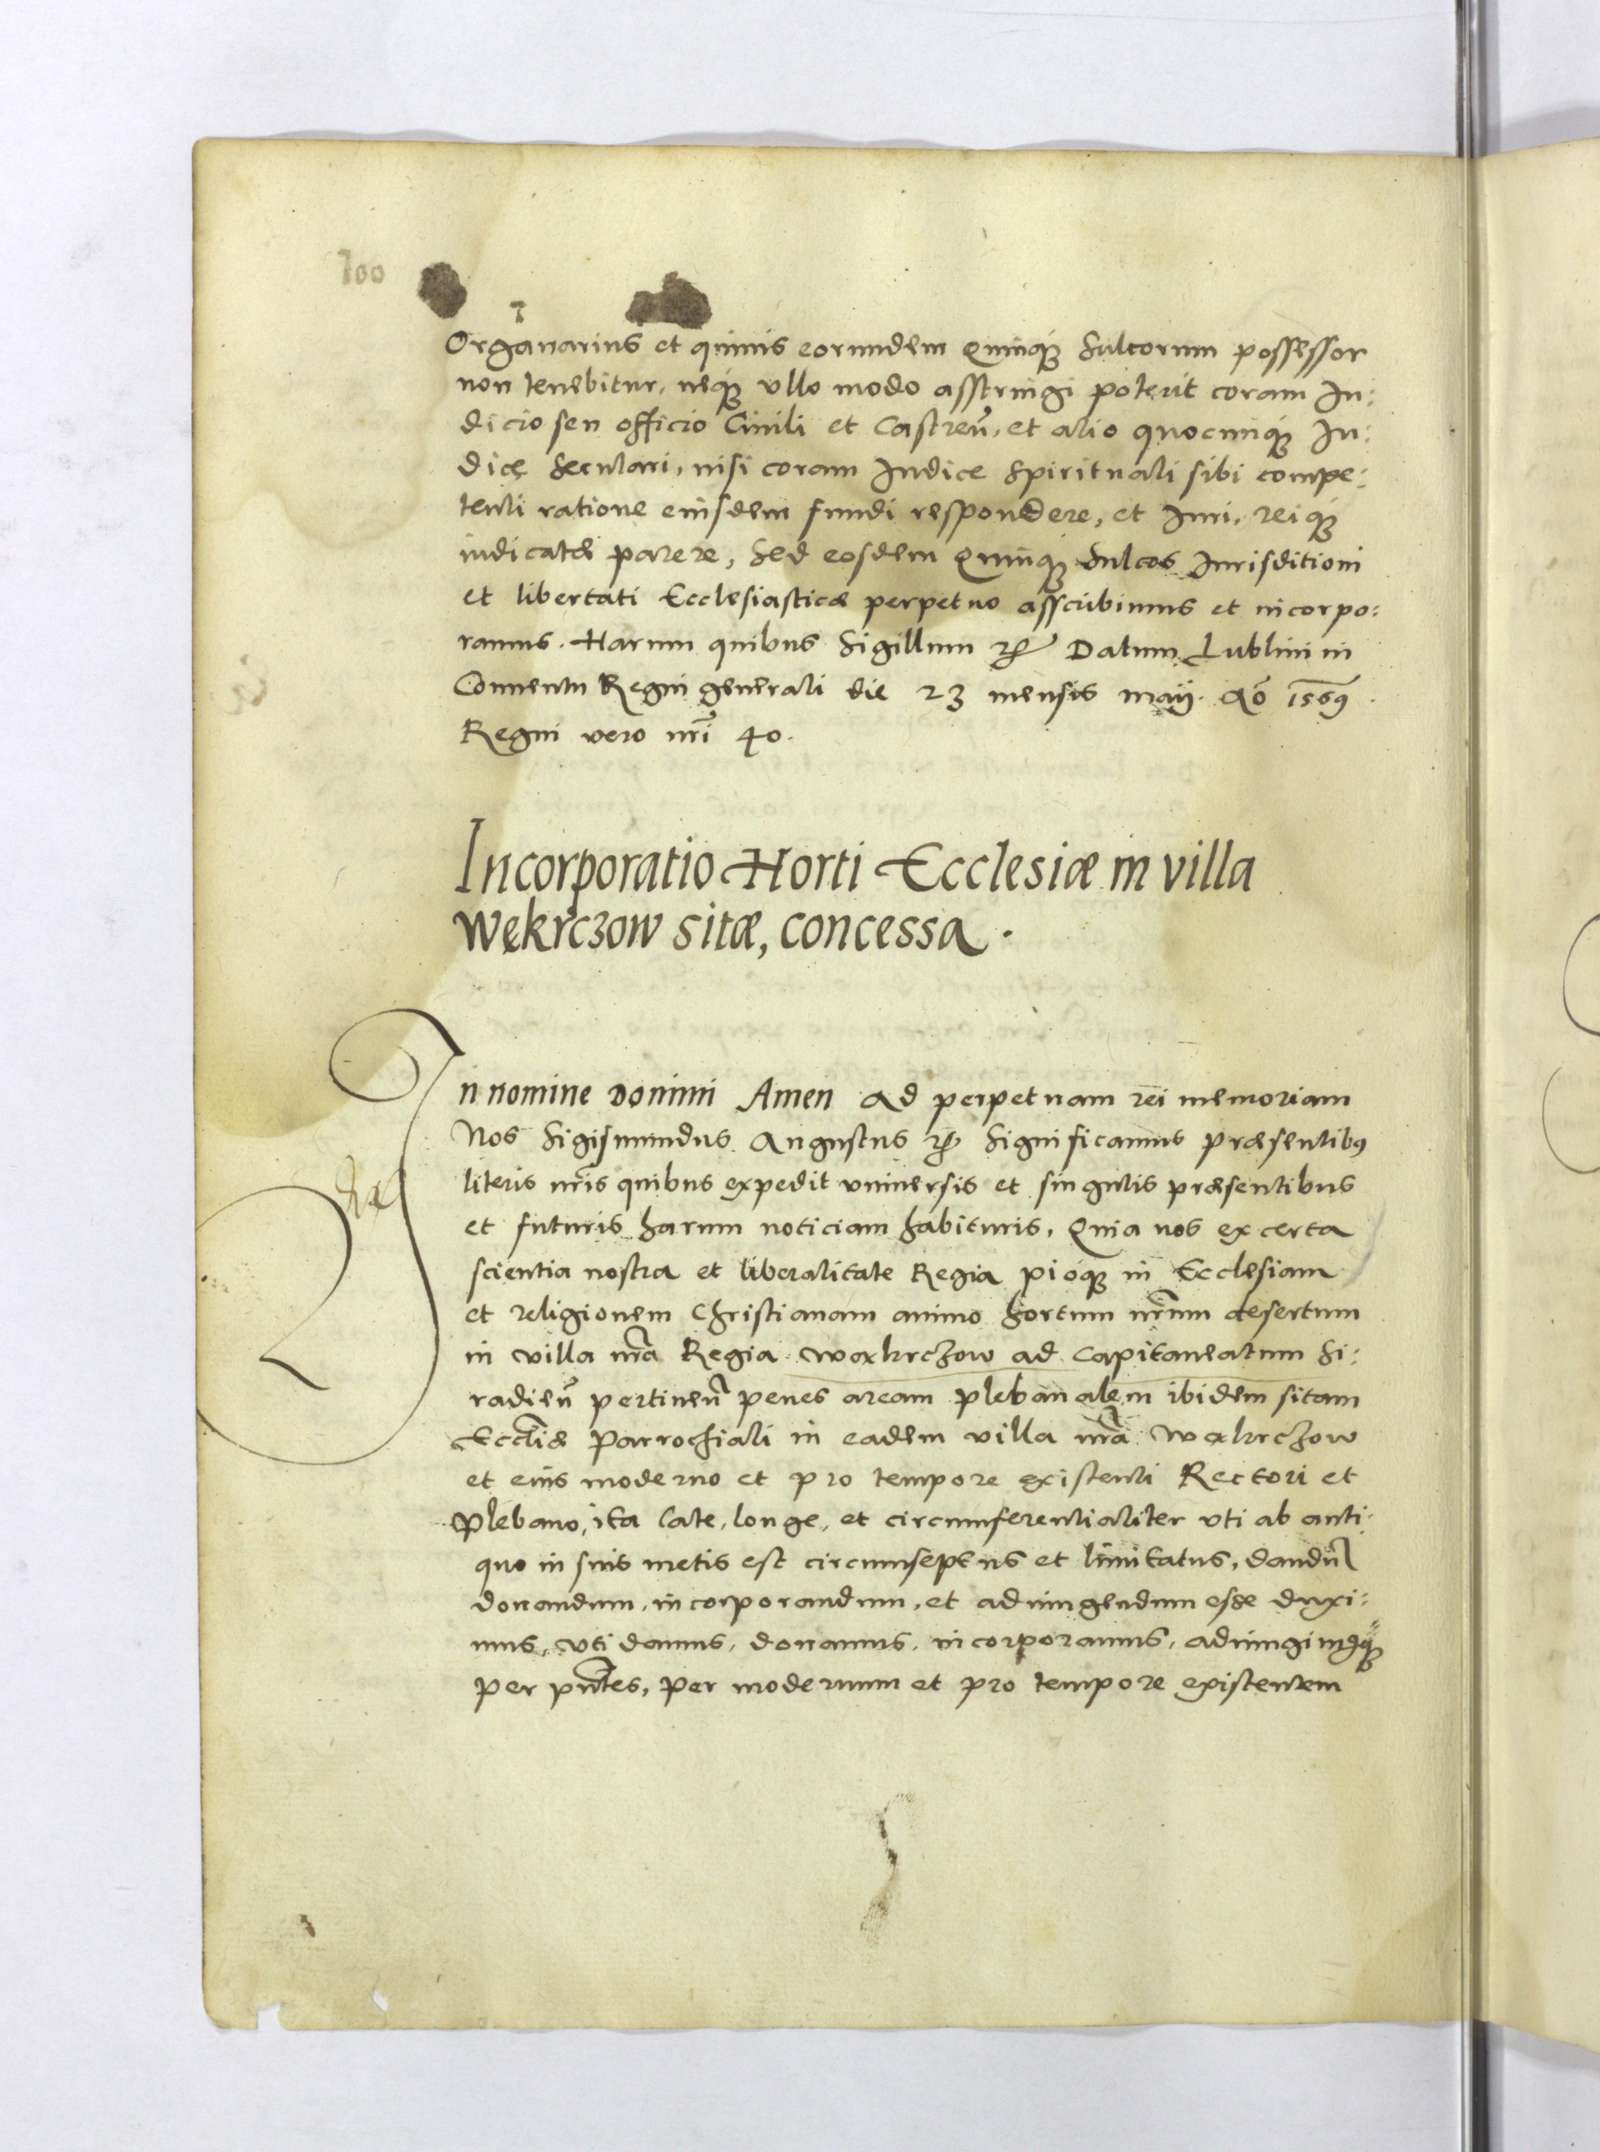 100
Organarius et quiuis eorundem Quinqꝫ sulcorum possessor
non tenebitur, neqꝫ vllo modo asstringi poterit coram Iu:
dicio seu officio Ciuili et Castreñ, et alio quocunqꝫ Iu:
dice seculari, nisi coram Iudice Spirituali sibi compe:
tenti ratione eiusdem fundi respondere, et Iuri, reiqꝫ
iudicatæ parere, Sed eosdem Quinqꝫ Sulcos Iurisditioni
et libertati Ecclesiasticæ perpetuo asscribimus et incorpo:
ramus. Harum quibus Sigillum ꝛc̃ Datum Lublini in
Conuentu Regni generali die 23 mensis maij. Aō 1569
Regni vero nr̃i 40.
Incorporatio Horti Ecclesiæ in villa
Wękrczow sitæ, concessa.
In nomine Domini Amen Ad perpetuam rei memoriam
Nos Sigismundus Augustus ꝛc̃ Significamus præsentibꝰ
literis nr̃is quibus expedit vniuersis et singulis præsentibus
et futuris harum noticiam habituris, Quia nos ex certa
scientia nostra et liberalitate Regia pioqꝫ in Ecclesiam
et religionem Christianam animo hortum nr̃um desertum
in villa nr̃a Regia Wakrczow ad Capitaneatum Si:
radieñ pertineñ penes aream plebanalem ibidem sitam
Eccl̃iæ Parrochiali in eadem villa nr̃a Wakrczow
et eius moderno et pro tempore existenti Rectori et
plebano, ita late, longe, et circumferentialiter vti ab anti:
quo in suis metis est circumseptus et limitatus, dandũ
donandum, incorporandum, et adiungendum esse duxi:
mus, vti damus, donamus, incorporamus, adiungimꝰqꝫ
per pn̄tes, per modernum et pro tempore existentem